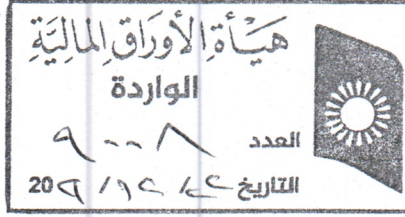 هَيْأَةِ الأَوْرَاقِ المَالِيَّةِ
الواردة
العدد ٩٠٠٨
التاريخ / / 20